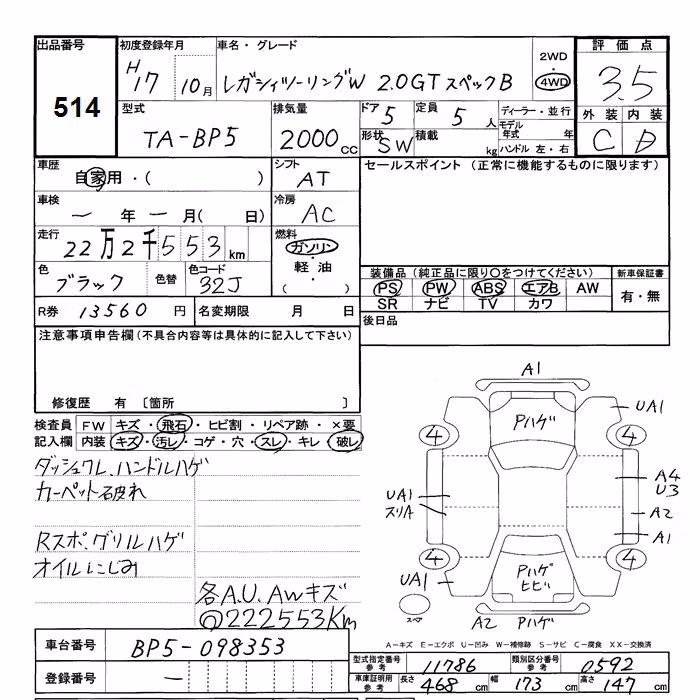 出品番号
514
初度登録年月
H 17 10月
車名・グレード
レガシィツーリングW 2.0GTスペックB
2WD
4WD
評価点
3.5
外装 内装
C D
型式
TA-BP5
排気量
2000cc
ドア
5
定員
5人
形状
SW
積載
kg
ディーラー・並行
モデル年式 年
ハンドル 左・右
車歴
自家用・( )
シフト
AT
車検
ー 年 ー 月( 日)
冷房
AC
走行
22万2千553km
燃料
ガソリン・
軽油
( )
色
ブラック
色替
色コード
32J
R券 13560 円
名変期限 月 日
セールスポイント (正常に機能するものに限ります)
装備品(純正品に限り○をつけてください)
PS PW ABS エアB AW
SR ナビ TV カワ
新車保証書
有・無
後日品
注意事項申告欄(不具合内容等は具体的に記入して下さい)
修復歴 有 〔箇所 〕
検査員記入欄
FW キズ・飛石・ヒビ割・リペア跡・×要
内装 キズ・汚レ・コゲ・穴・スレ・キレ・破レ
ダッシュワレ、ハンドルハゲ
カーペット破れ
Rスポ、グリルハゲ
オイルにじみ
各A.U.AWキズ
@222553Km
A1
Pハゲ
UA1
4
4
A4
U3
UA1
スリA
A2
A1
4
4
UA1
Pハゲ
ヒビ
スペア
A2 Pハゲ
A−キズ E−エクボ U−凹み W−補修跡 S−サビ C−腐食 XX−交換済
車台番号
BP5-098353
登録番号
ー
型式指定番号参考
11786
類別区分番号参考
0592
車庫証明用参考
長さ 468 cm
幅 173 cm
高さ 147 cm